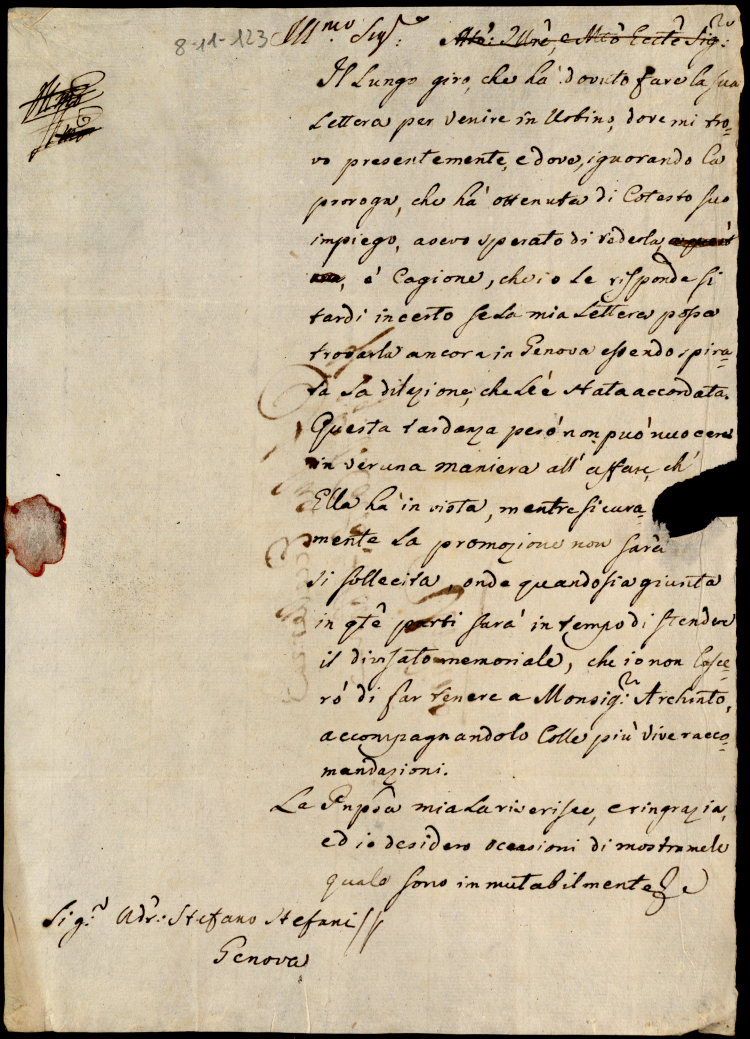 8-11-123
Ill.mo Sig.r
Il Lungo giro, che hà dovuto fare la sua
Lettera per venire in Urbino, dove mi tro=
vo presentemente, e dove, ignorando la
proroga, che hà ottenuta di Cotesto suo
impiego, avevo sperato di vederla,
è Cagione, che io Le risponda si
tardi incerto se La mia Lettera possa
trovarla ancora in Genova essendo spira=
ta La dilazione, che Le è stata accordata.
Questa tardanza però non può nuocere
in veruna maniera all' affare, ch'
Ella hà in vista, mentre sicura=
mente La promozione non sarà
si sollecita, onde quando sia giunta
in qte parti sarà in tempo di stendere
il divisato memoriale, che io non lasce=
rò di far tenere a Monsig.r Archinto,
accompagnandolo Colle più vive racco=
mandazioni.
La Pnpssa mia La riverisce, e ringrazia,
ed io desidero occasioni di mostrarmele
quale sono inmutabilmente
Sig.r Adr: Stefano Stefani //
Genova